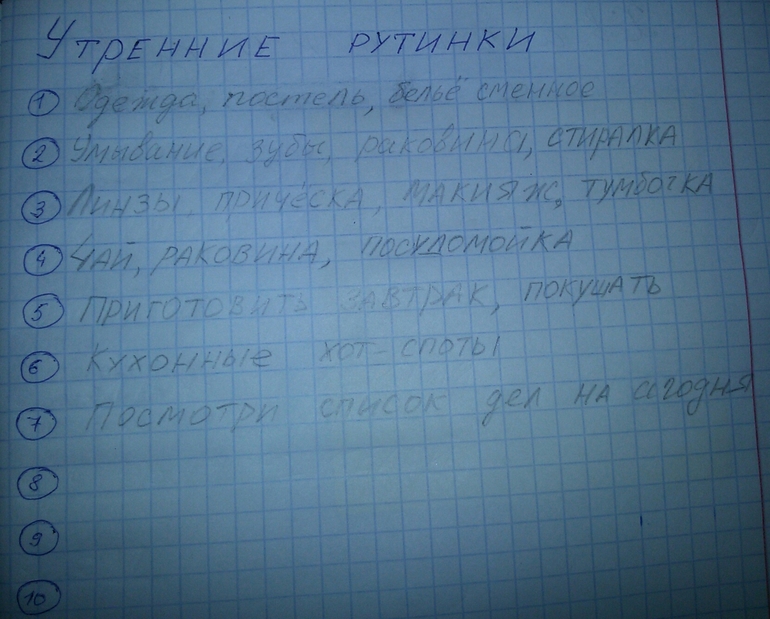 Утренние рутинки
1 Одежда, постель, бельё сменное
2 Умывание, зубы, раковина, стиралка
3 Линзы, причёска, макияж, тумбочка
4 Чай, раковина, посудомойка
5 Приготовить завтрак, покушать
6 Кухонные хот-споты
7 Посмотри список дел на сегодня
8
9
10